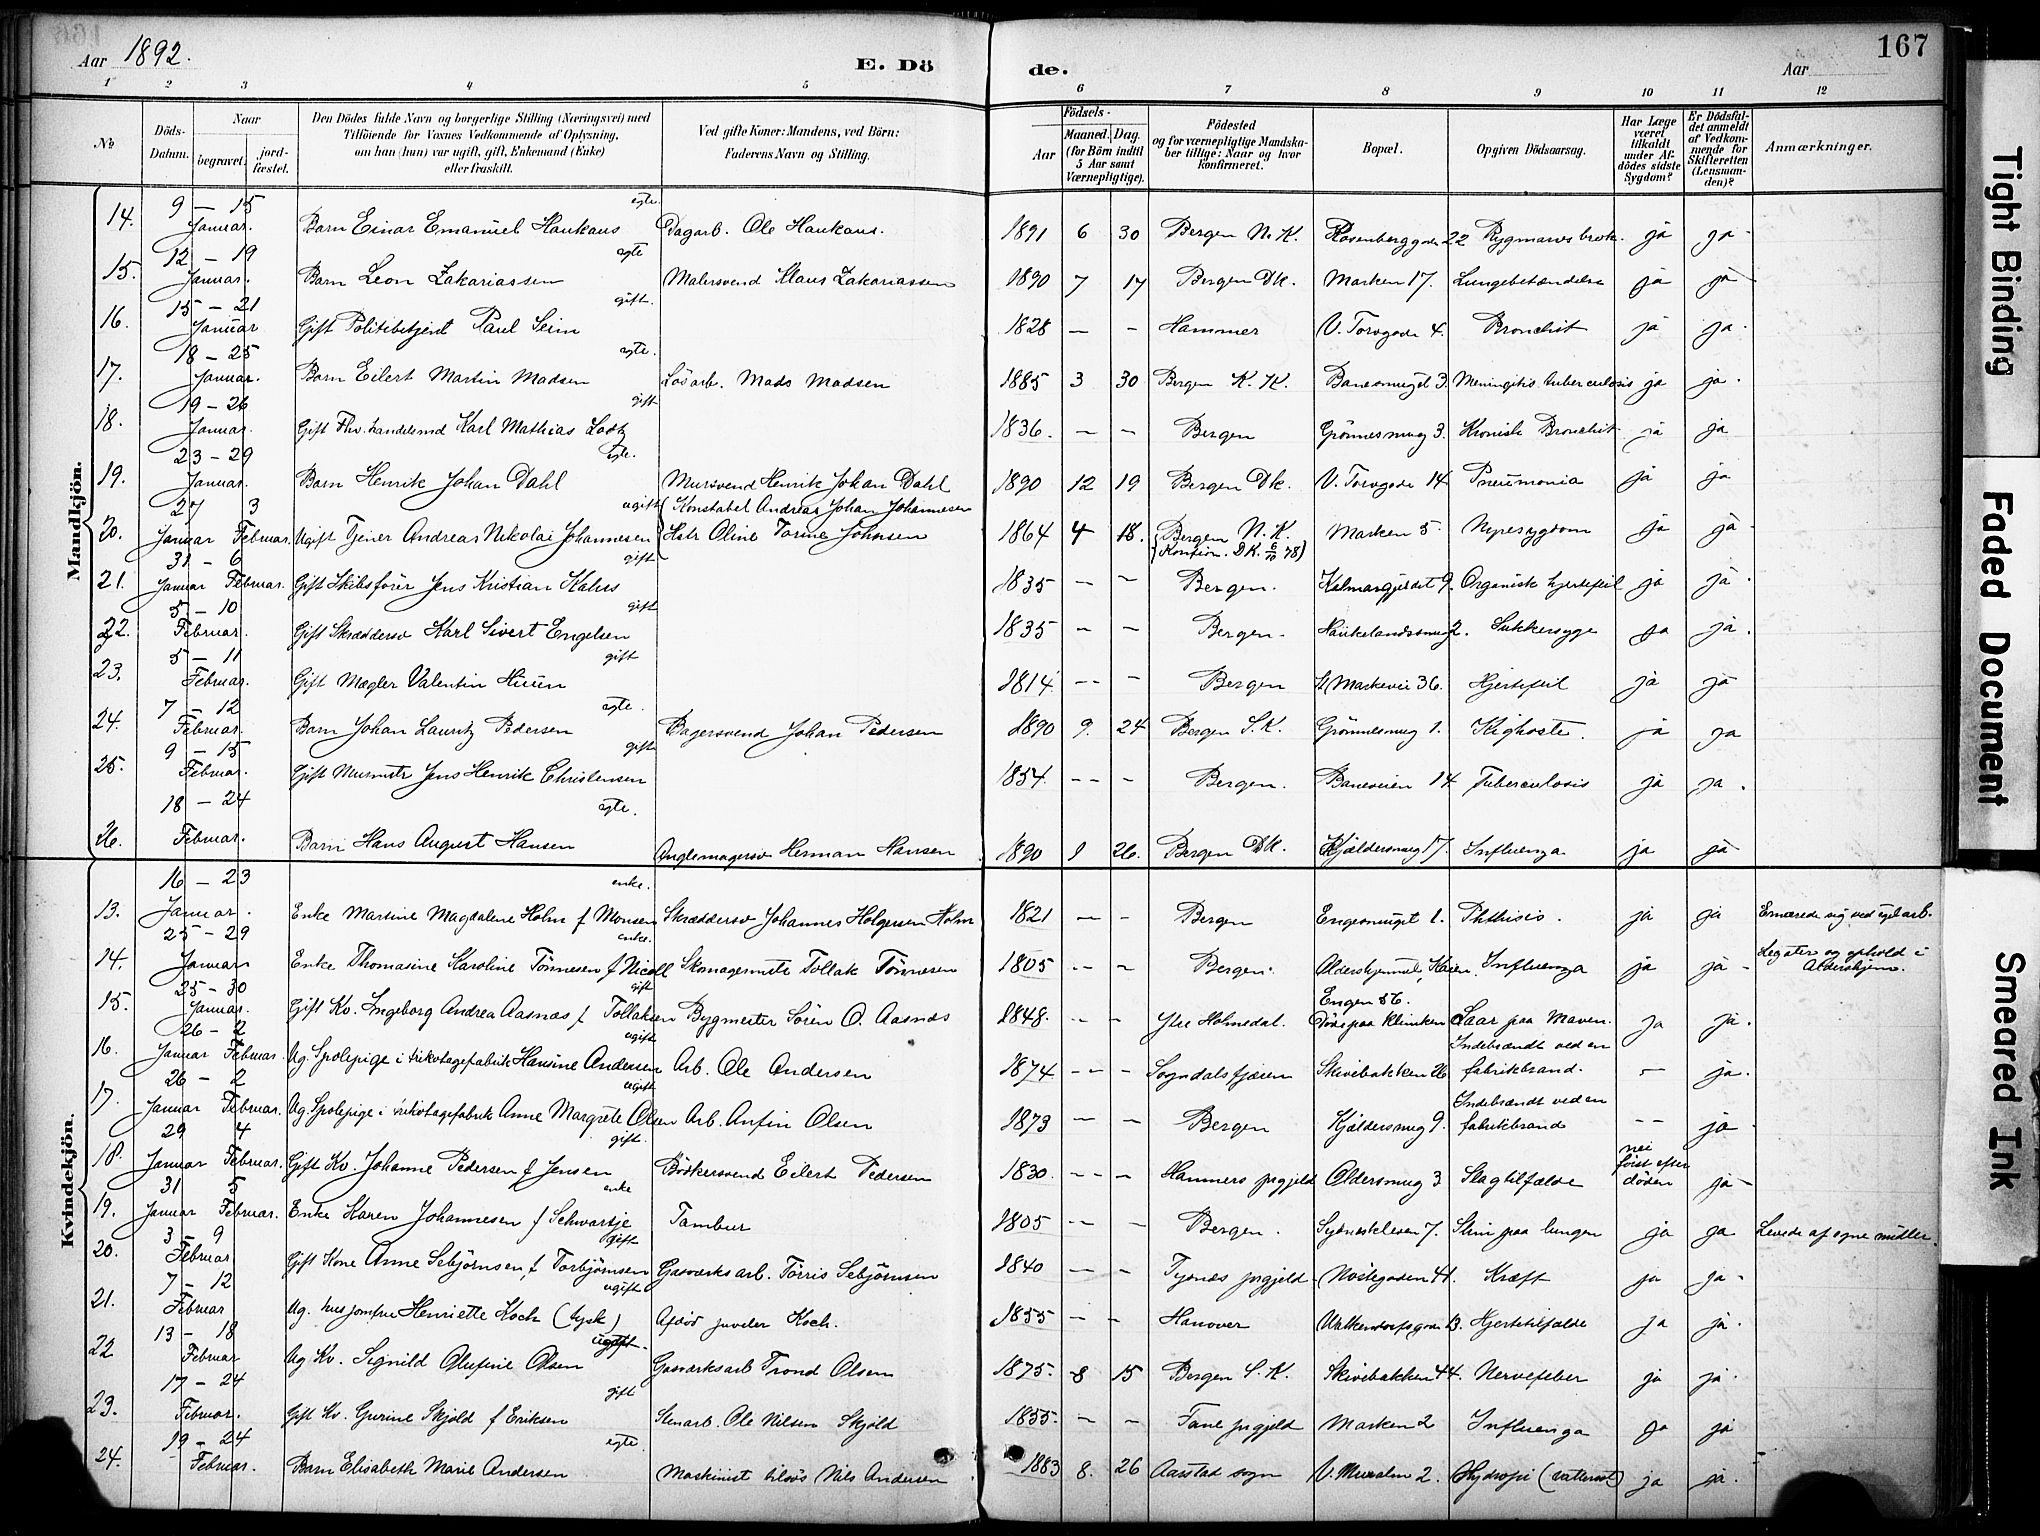 Aar 1892.
E. Dö
de.
Aar
167
1 2 3 4 5 6 7 8 9 10 11 12
№
Döds-Datum.
Naar
begravet.
jord-fæstet.
Den Dödes fulde Navn og borgerlige Stilling (Næringsvei) med
Tilföiende for Voxnes Vedkommende af Oplysning,
om han (hun) var ugift, gift, Enkemand (Enke)
eller fraskilt.
Ved gifte Koner: Mandens, ved Börn:
Faderens Navn og Stilling.
Födsels-
Aar
Maaned. Dag.
(for Börn indtil
5 Aar samt
Værnepligtige).
Födested
og for værnepligtige Mandska-
ber tillige: Naar og hvor
konfirmeret.
Bopæl.
Opgiven Dödsaarsag.
Har Læge
været
tilkaldt
under Af-
dödes sidste
Sygdom?
Er Dödsfal-
det anmeldt
af Vedkom-
mende for
Skifteretten
(Lensman-
den)?
Anmærkninger.
Mandkjön.
14. 9 – 15 Januar. Barn Einar Emanuel Haukaas ægte. Dagarb. Ole Haukaas. 1891 6 30 Bergen N. K. Rosenberggaden 22 Rygmarvsbrok. ja ja
15. 12 – 19 Januar. Barn Leon Zakariassen ægte Malersvend Klaus Zakariassen 1890 7 17 Bergen DK. Marken 17. Lungebetændelse ja ja
16. 15 – 21 Januar Gift Politibetjent Paul Seim gift. 1828 – – Hammer V. Torvgade 4. Bronchit ja ja.
17. 18 – 25 Januar. Barn Eilert Martin Madsen ægte. Lösarb. Mads Madsen 1885 3 30 Bergen K. K. Banesmuget 3. Meningitis tuberculosis ja ja.
18. 19 – 26 Januar. Gift Fhv. handelsmd Karl Mathias gift 1836. – – Bergen Grönnesmug 3. Kronisk Bronchit ja ja
19. 23 – 29 Januar. Barn Henrik Johan Dahl Ægte. Mursvend Henrik Johan Dahl 1890 12 19 Bergen Dk. V. Torvgade 14 Pneumonia ja ja
20. 27 3 Januar Februar. Ugift Tjener Andreas Nikolai Johannesen ugift Konstabel Andreas Johan Johannesen Hstr Oline Johnsen 1864 4 18. Bergen N. K. (Konfirm. DK. 78) Marken 5. Nyresygdom ja ja
21. 31 – 6 Januar Februar. Gift Skibsförer Jens Kristian Kahrs gift 1835 – – Bergen. Kalmargjeldet 9. Organisk hjertefeil ja ja.
22. 5 – 10 Februar. Gift Skræddersv Karl Sivert Engelsen gift 1835 – – Bergen. Haukelandssmug 2. Sukkersyge ja ja.
23. 5 – 11 Februar. Gift Mægler Valentin Huun gift 1814 – – Bergen St Markevei 36. Hjertefeil ja ja
24. 7 – 12 Februar. Barn Johan Lauritz Pedersen ægte. Bagersvend Johan Pedersen 1890 9. 24 Bergen S. K. Grönnesmug 1. Kighoste. ja ja
25. 9 – 15 Februar. Gift Murmstr Jens Henrik Christensen gift 1854. – – Bergen. Baneveien 14. Tuberculosis ja ja.
26. 18 – 24 Februar. Barn Hans August Hansen ægte. Anglemagersv Herman Hansen 1890 1 26. Bergen DK. Kjældersmug 17. Influenza ja ja
Kvindekjön.
13. 16 – 23 Januar. Enke Martine Magdalene Holm f Monsen enke. Skræddersv Johannes Holgersen Holm 1821 – – Bergen Engesmuget 1. Phthisis. ja ja Ernærede sig ved egetarb.
14. 25 – 29 Januar Enke Thomasine Karoline Tönnesen f Nicoll enke. Skomagermstr Tollak Tönnesen 1805 – – Bergen. Aldershjemmet, Influenza ja ja Legater og ophold i Aldershjem.
15. 25 – 30 Januar. Gift Kv. Ingeborg Andrea Aasnæs f Tollaksen gift Bygmester Sören O. Aasnæs 1848. – – Ytre Holmedal. Engen 56. Döde paa Kliniken Saar paa Maven. ja ja.
16. 26 – 2 Januar Februar. Ug. Spolepige i trikotagefabrik Hansine Andersen ugift Arb. Ole Andersen 1874 – – Sogndalsfjæren Skivebakken 26 Indebrændt ved en fabrikbrand. – ja.
17. 26 – 2 Januar Februar. Ug. Spolepige i trikotagefabrik Anne Margrete Olsen ugift Arb. Anfin Olsen 1873 – – Bergen Kjældersmug 9. Indebrændt ved en fabrikbrand – – ja
18. 29 4 Januar Februar. Gift Kv. Johanne Pedersen f Jensen gift. Bödkersvend Eilert Pedersen 1830. – – Hammers prgjeld Aldersmug 3 Slagtilfælde nei först efter döden ja
19. 31 5 Januar Februar. Enke Karen Johannesen f Schwartje enke Tambur 1805 – – Bergen. Sydneskleven 7. Slim paa lungen ja ja Levede af egne midler.
20. 3 – 9 Februar Gift Kone Anne Sebjörnsen f Torbjörnsen gift Gasværksarb. Törris Sebjörnsen 1840 – – Tysnæs prgjeld Nöstegaden 41. Kræft ja ja.
21. 7 – 12 Februar Ug. husjomfru Henriette Koch (tysk) ugift Afdöd juveler Koch. 1855 – – Hanover Walkendorfsgaden 13. Hjertetilfælde ja ja.
22 13 – 18 Februar Ug Kv. Signild Olufine Olsen ugift Gasværksarb Trond Olsen 1875. 8 15 Bergen S. K. Skivebakken 44. Nervefeber ja ja.
23. 17 – 24 Februar. Gift Kv. Gurine Skjold f Eriksen gift Stenarb. Ole Nilsen Skjold 1855. – – Fane prgjeld Marken 2 Influenza ja ja
24. 19 – 24 Februar. Barn Elisabeth Marie Andersen ægte. Maskinist Nils Andersen 1883 8. 26 Aarstad sogn V. Muralm 2. Hydropi (vattersot) ja ja.
Tight Binding
Faded Document
Smeared Ink